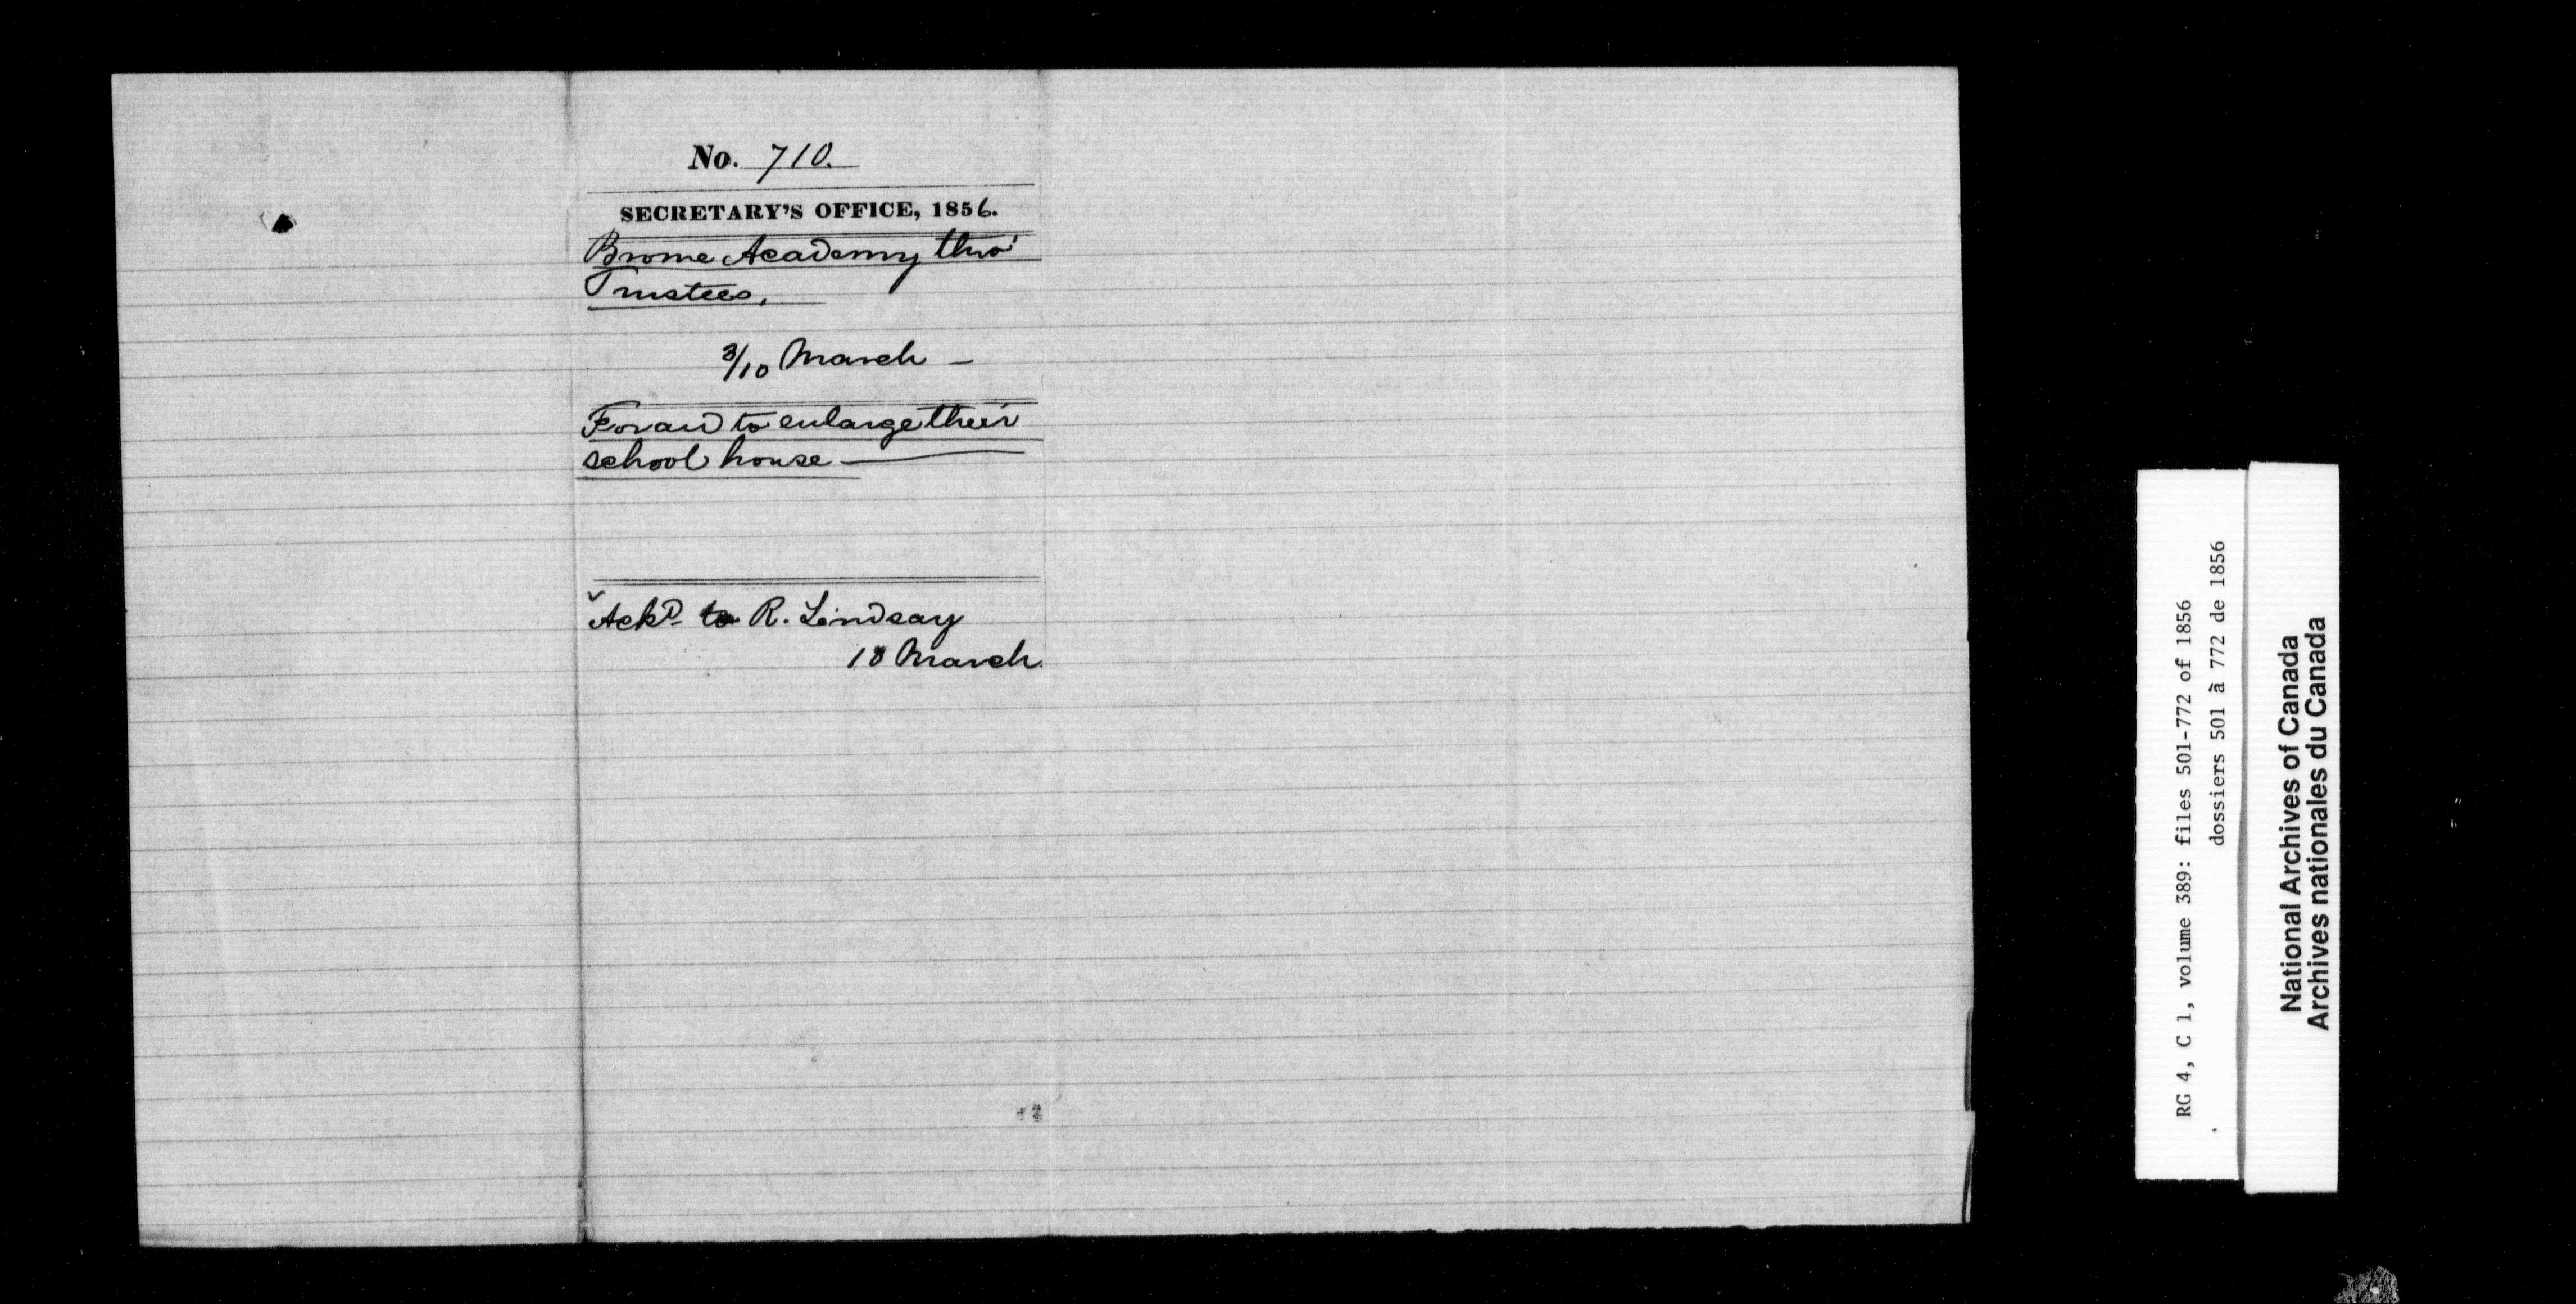 No. 710.
SECRETARY'S OFFICE, 1856.
Brome Academy thro'
Trustees.
3/10 March –
For aid to enlarge their
school house —
Ackd to R. Lindsay
18 March
RG 4, C 1, volume 389: files 501-772 of 1856
dossiers 501 à 772 de 1856
National Archives of Canada
Archives nationales du Canada